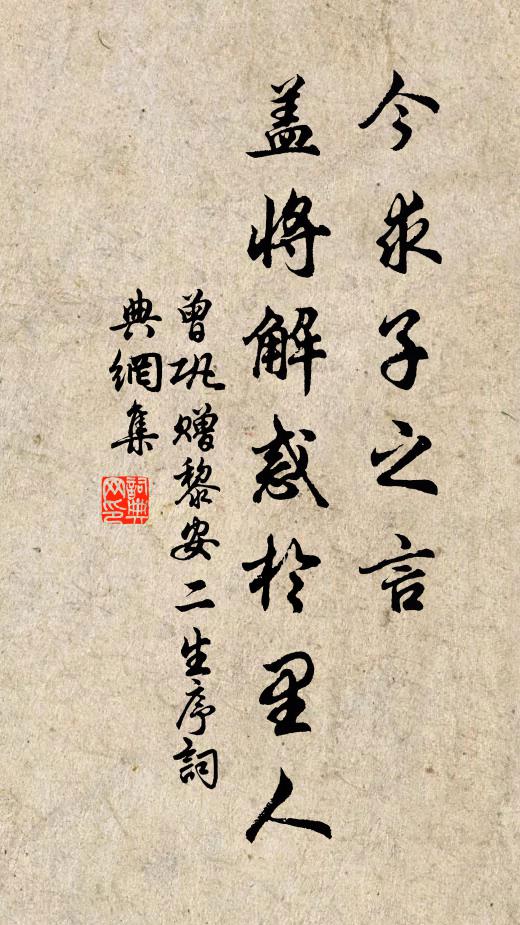 今求子之言
盖将解惑於里人
曾巩赠黎安二生序詞
典網集
詞典
网印